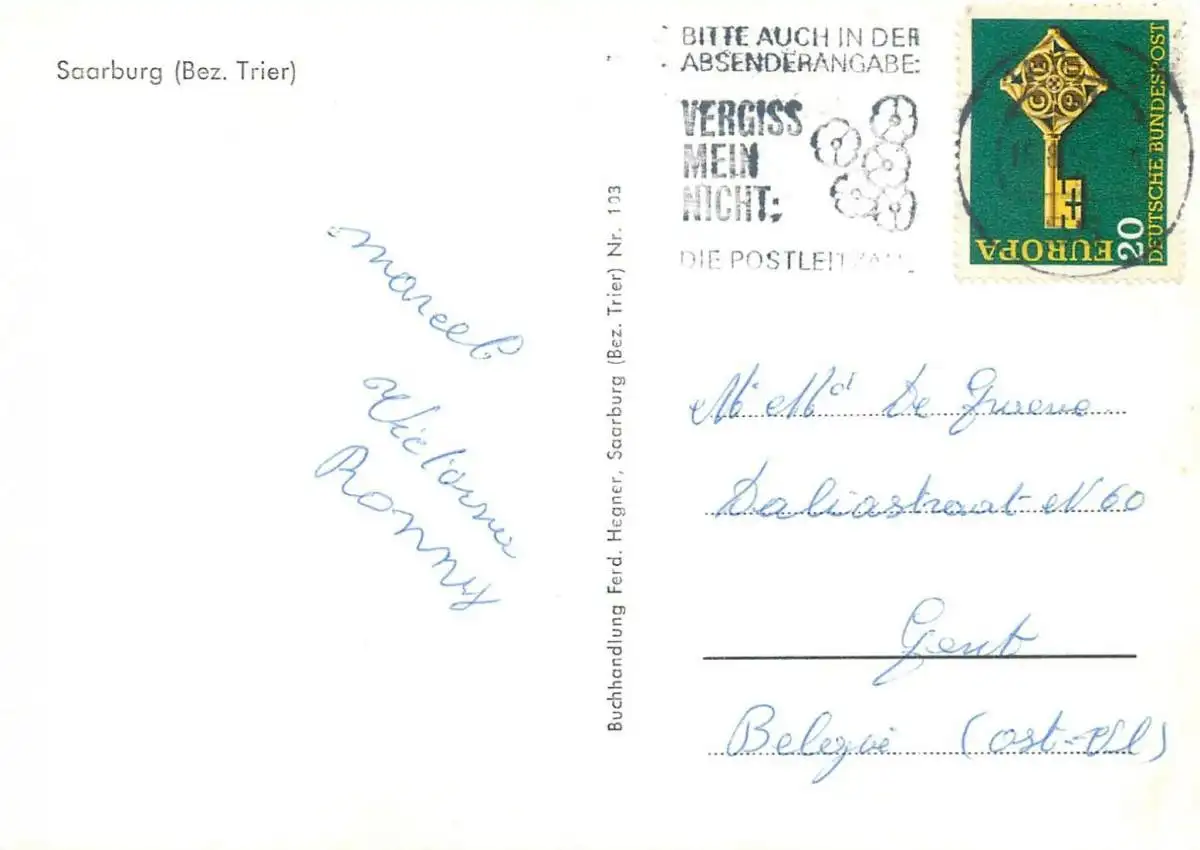 Saarburg (Bez. Trier)
BITTE AUCH IN DER
ABSENDERANGABE:
VERGISS
MEIN
NICHT:
DIE POSTLEITZAHL
CEPT
EUROPA
20
DEUTSCHE BUNDESPOST
Marcel
Ronny
Buchhandlung Ferd. Hegner, Saarburg (Bez. Trier) Nr. 103
Mr Md De Groene
Daliastraat N 60
Gent
Belegie (ost-Vl)